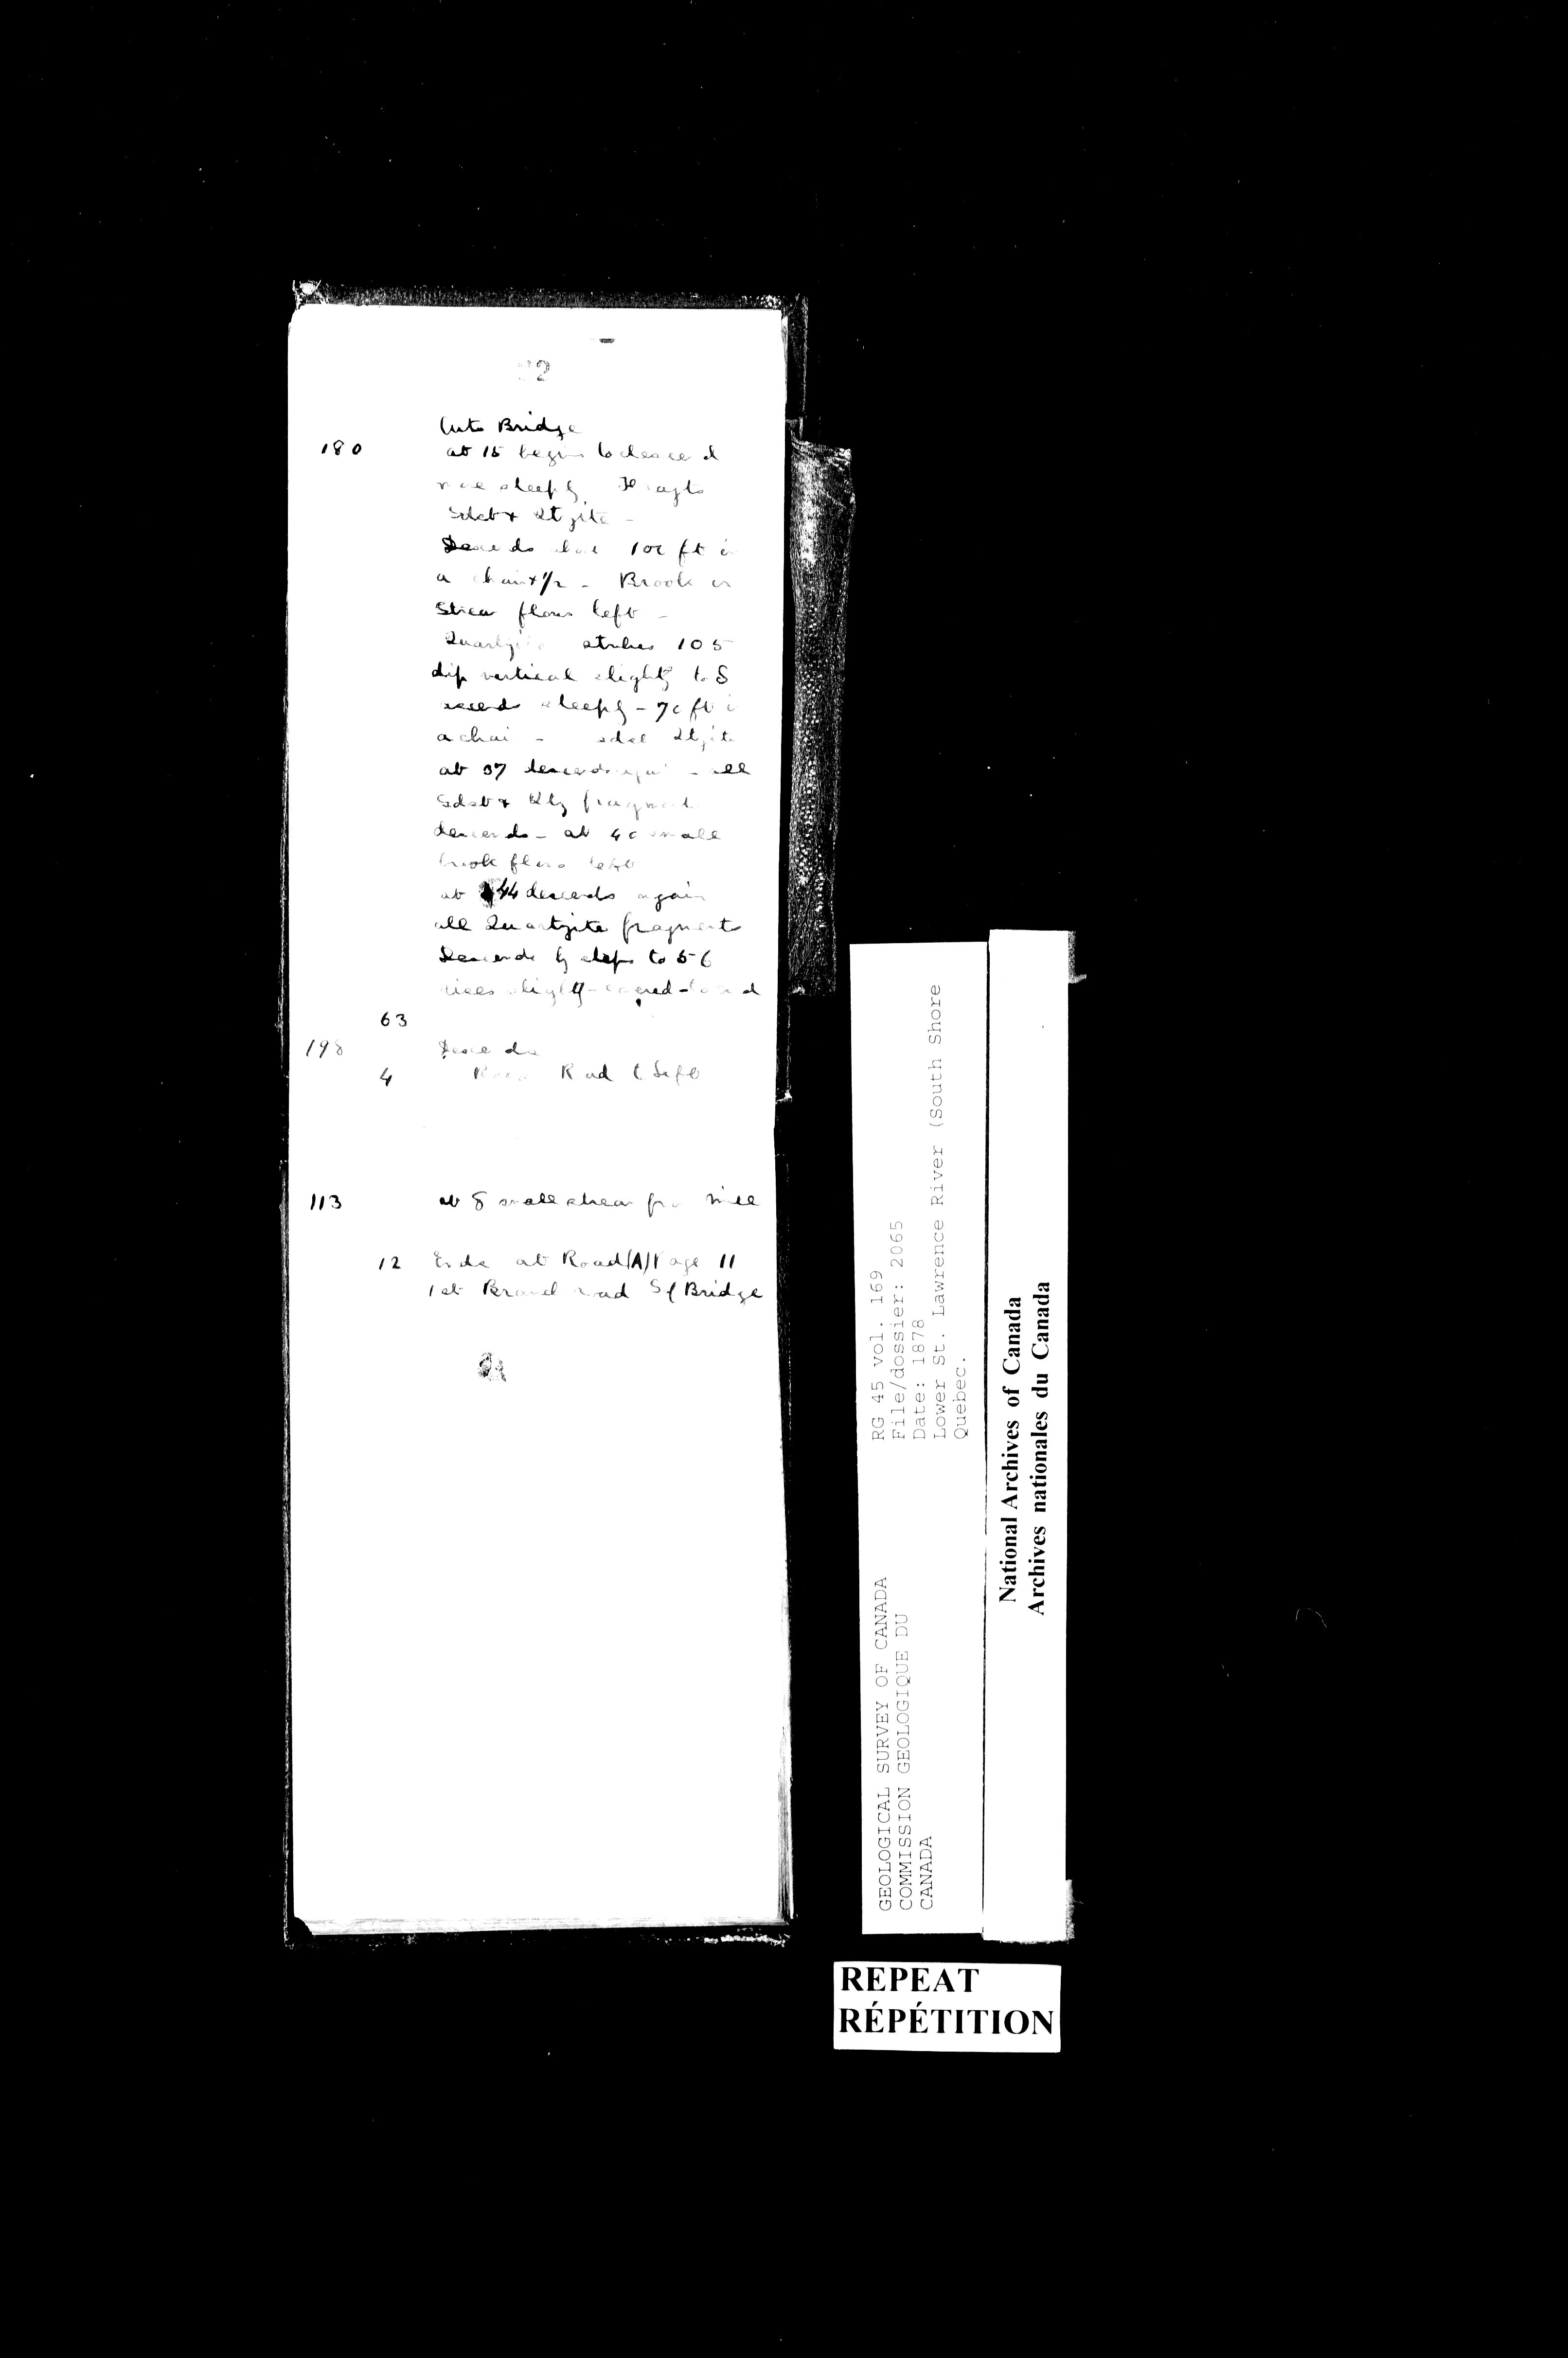 Bridge
180 at 15 begins to descend
more steeply
Sdst & Qtzite -
Descends 100 ft in
a chain & 1/2 - Brook or
Stream flows left -
Quartzite strikes 105
dip vertical slightly to S
ascends steeply - 70 ft in
a chain - Qtzite
at 37 descends again - all
Sdst & Qtz fragments
descends - at 40 small
brook flows left
at 44 descends again
all Quartzite fragments
Descends by steps to 56
rises slightly - covered -
63
198 Descends
4 Road to Left
113 at 8 small stream from Mill
12 Ends at Road (A) Page 11
1st Branch road S of Bridge
RG 45 vol. 169
File/dossier: 2065
Date: 1878
Lower St. Lawrence River (South Shore
Quebec.
GEOLOGICAL SURVEY OF CANADA
COMMISSION GEOLOGIQUE DU
CANADA
National Archives of Canada
Archives nationales du Canada
REPEAT
RÉPÉTITION